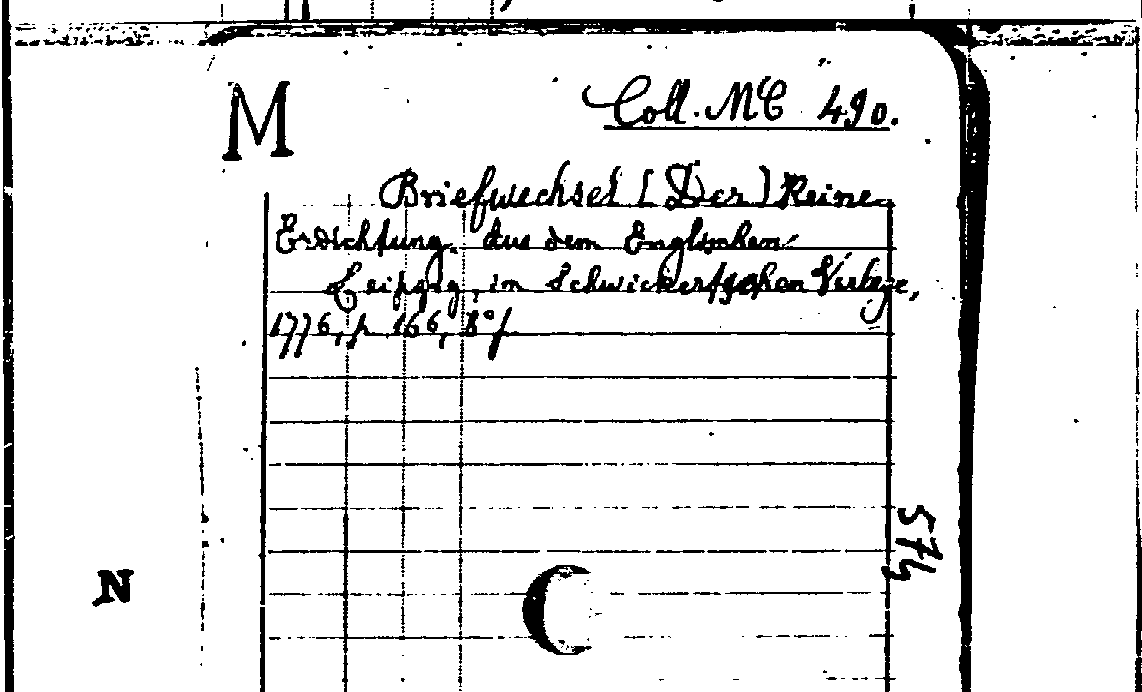 M
Coll. MC 490.
Briefwechsel [Der] Reine
Erdichtung. Aus dem Englischen.
Leipzig, im Schwickertschen Verlage,
1776, p. 166, 8°
574
N